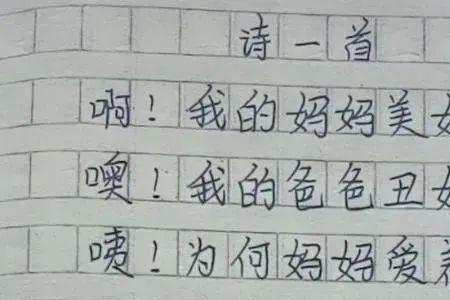 诗一首
啊！我的妈妈美
噢！我的爸爸丑
咦！为何妈妈爱